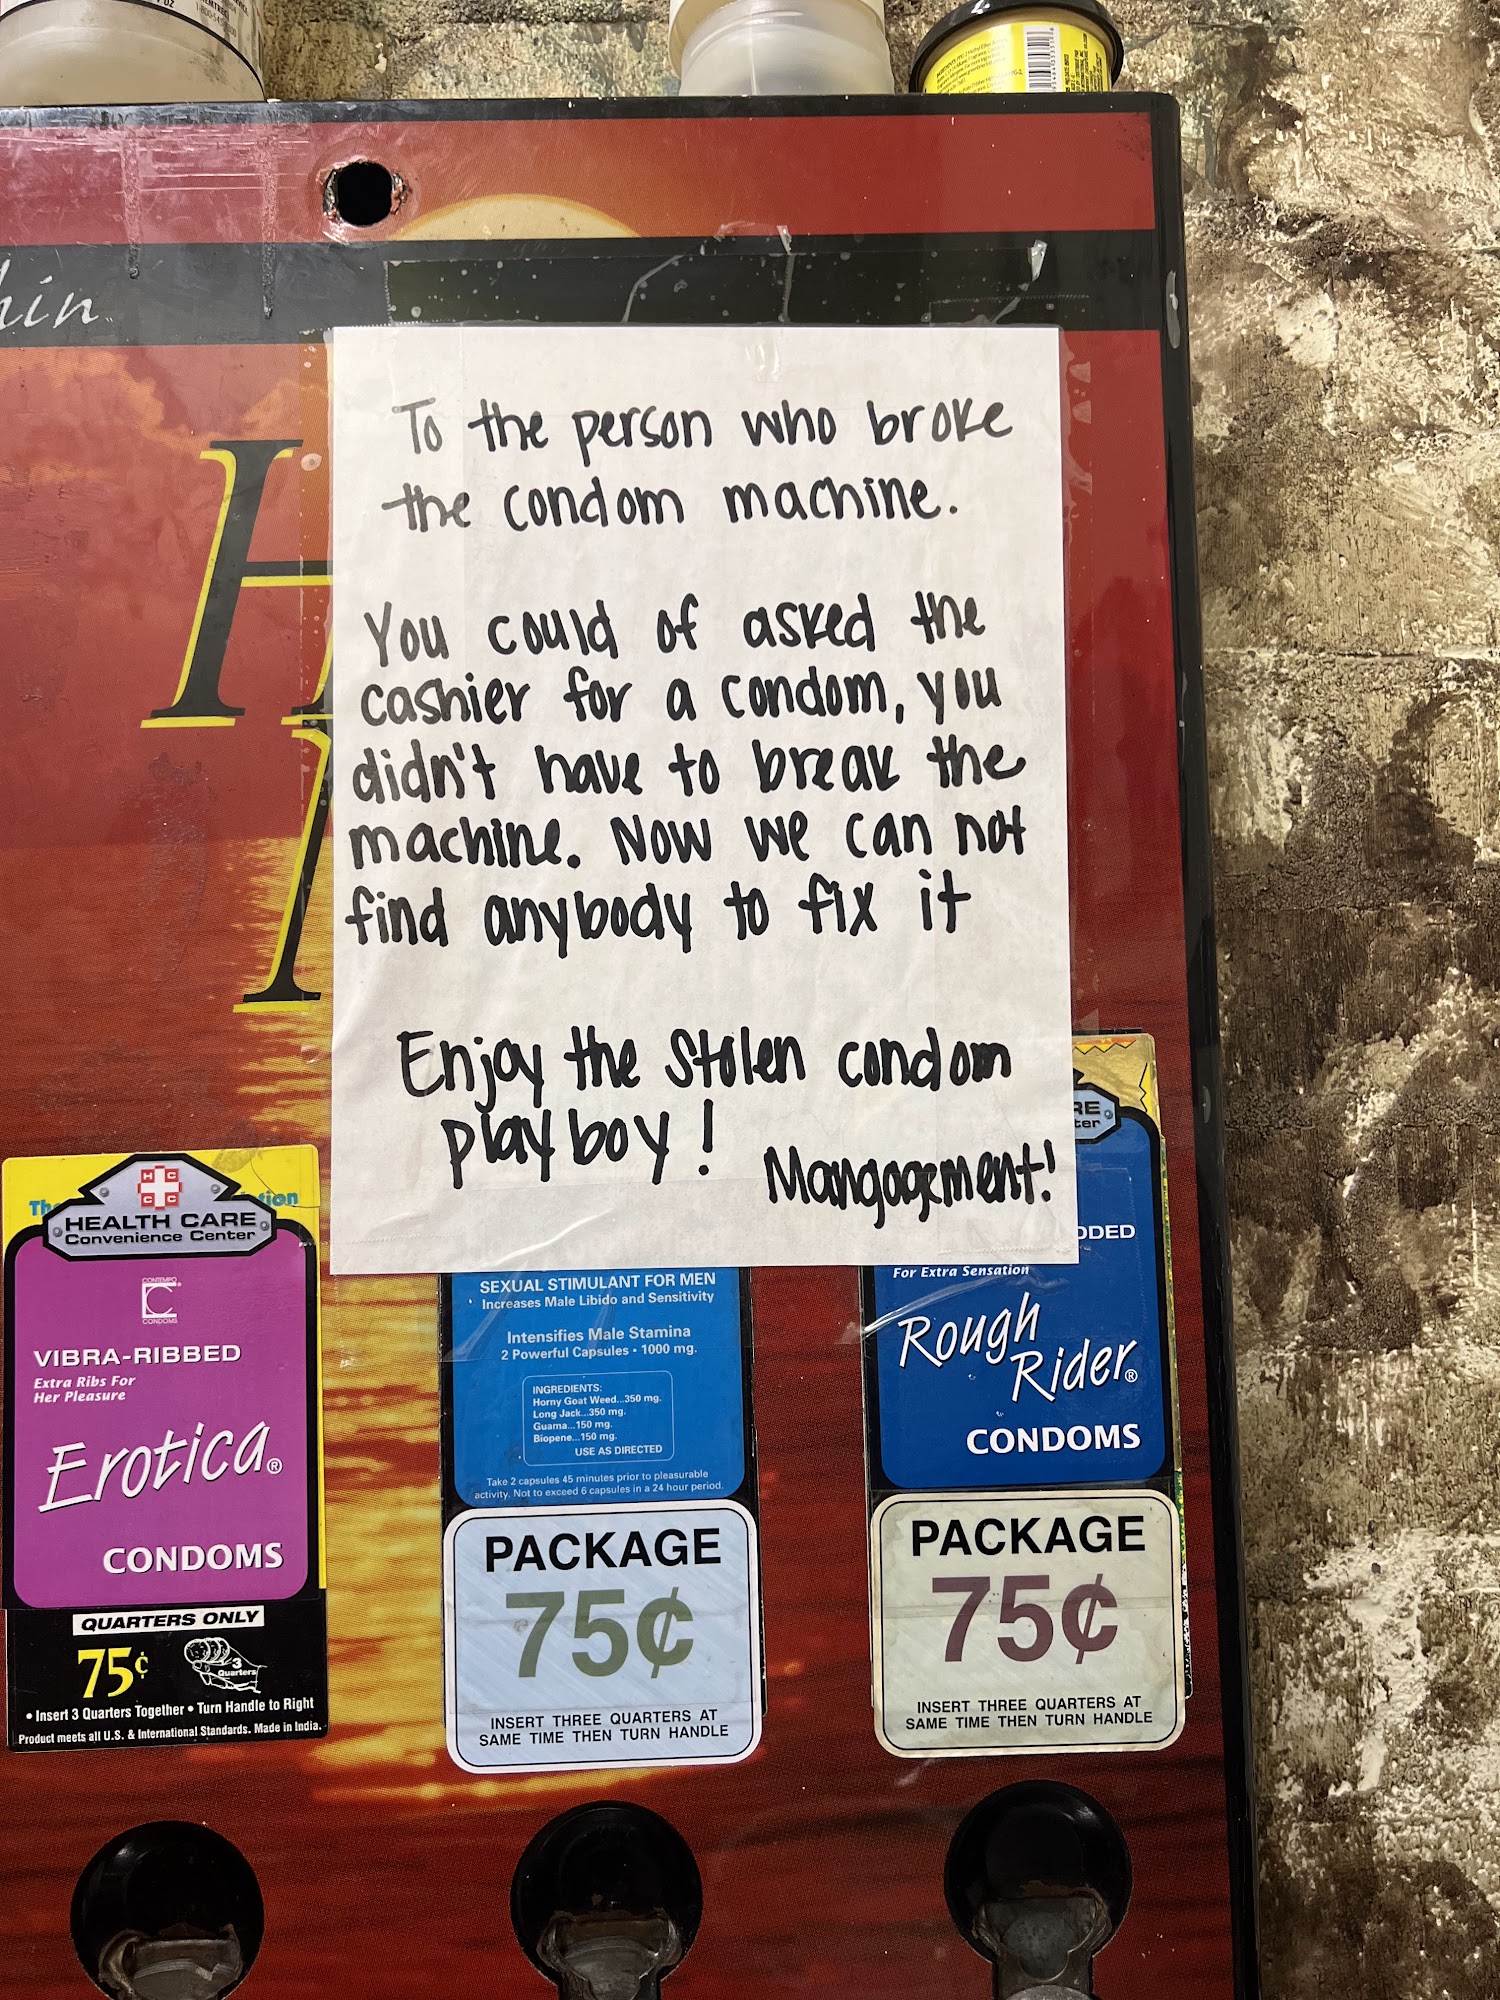 hin
H
To the person who broke
the condom machine.
You could of asked the
cashier for a condom, you
didn't have to break the
machine. Now we can not
find anybody to fix it
Enjoy the stolen condom
playboy!
Mangagement!
HCCC
HEALTH CARE
Convenience Center
CONTEMPO
CONDOMS
VIBRA-RIBBED
Extra Ribs For
Her Pleasure
Erotica®
CONDOMS
QUARTERS ONLY
75¢
3
Quarters
• Insert 3 Quarters Together • Turn Handle to Right
Product meets all U.S. & International Standards. Made in India.
SEXUAL STIMULANT FOR MEN
Increases Male Libido and Sensitivity
Intensifies Male Stamina
2 Powerful Capsules • 1000 mg.
INGREDIENTS:
Horny Goat Weed...350 mg.
Long Jack...350 mg.
Guama...150 mg.
Biopene...150 mg.
USE AS DIRECTED
Take 2 capsules 45 minutes prior to pleasurable
activity. Not to exceed 6 capsules in a 24 hour period.
PACKAGE
75¢
INSERT THREE QUARTERS AT
SAME TIME THEN TURN HANDLE
RE
ter
DDED
For Extra Sensation
Rough
Rider®
CONDOMS
PACKAGE
75¢
INSERT THREE QUARTERS AT
SAME TIME THEN TURN HANDLE